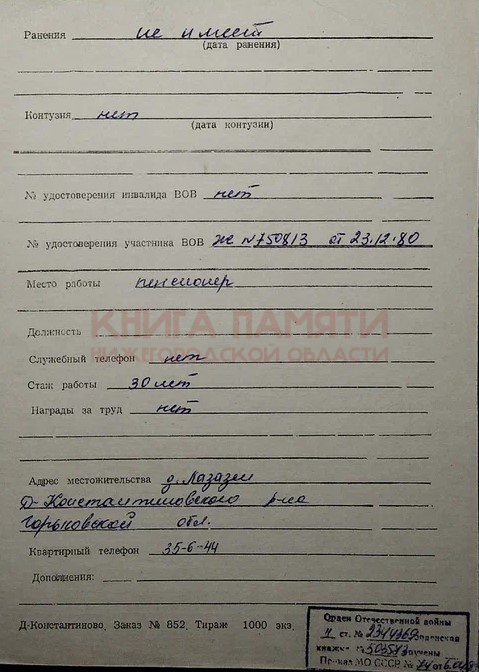 Ранения не имеет
(дата ранения)
Контузия нет
(дата контузии)
№ удостоверения инвалида ВОВ нет
№ удостоверения участника ВОВ Ж N 750813 от 23.12.80
Место работы пенсионер
КНИГА ПАМЯТИ
НИЖЕГОРОДСКОЙ ОБЛАСТИ
Должность
Служебный телефон нет
Стаж работы 30 лет
Награды за труд нет
Адрес местожительства д. Лазазеи
Д-Константиновского р-на
Горьковской обл.
Квартирный телефон 35-6-44
Дополнения:
Д-Константиново, Заказ № 852, Тираж 1000 экз.
Орден Отечественной войны
II ст. №
вручены
Приказ МО СССР №